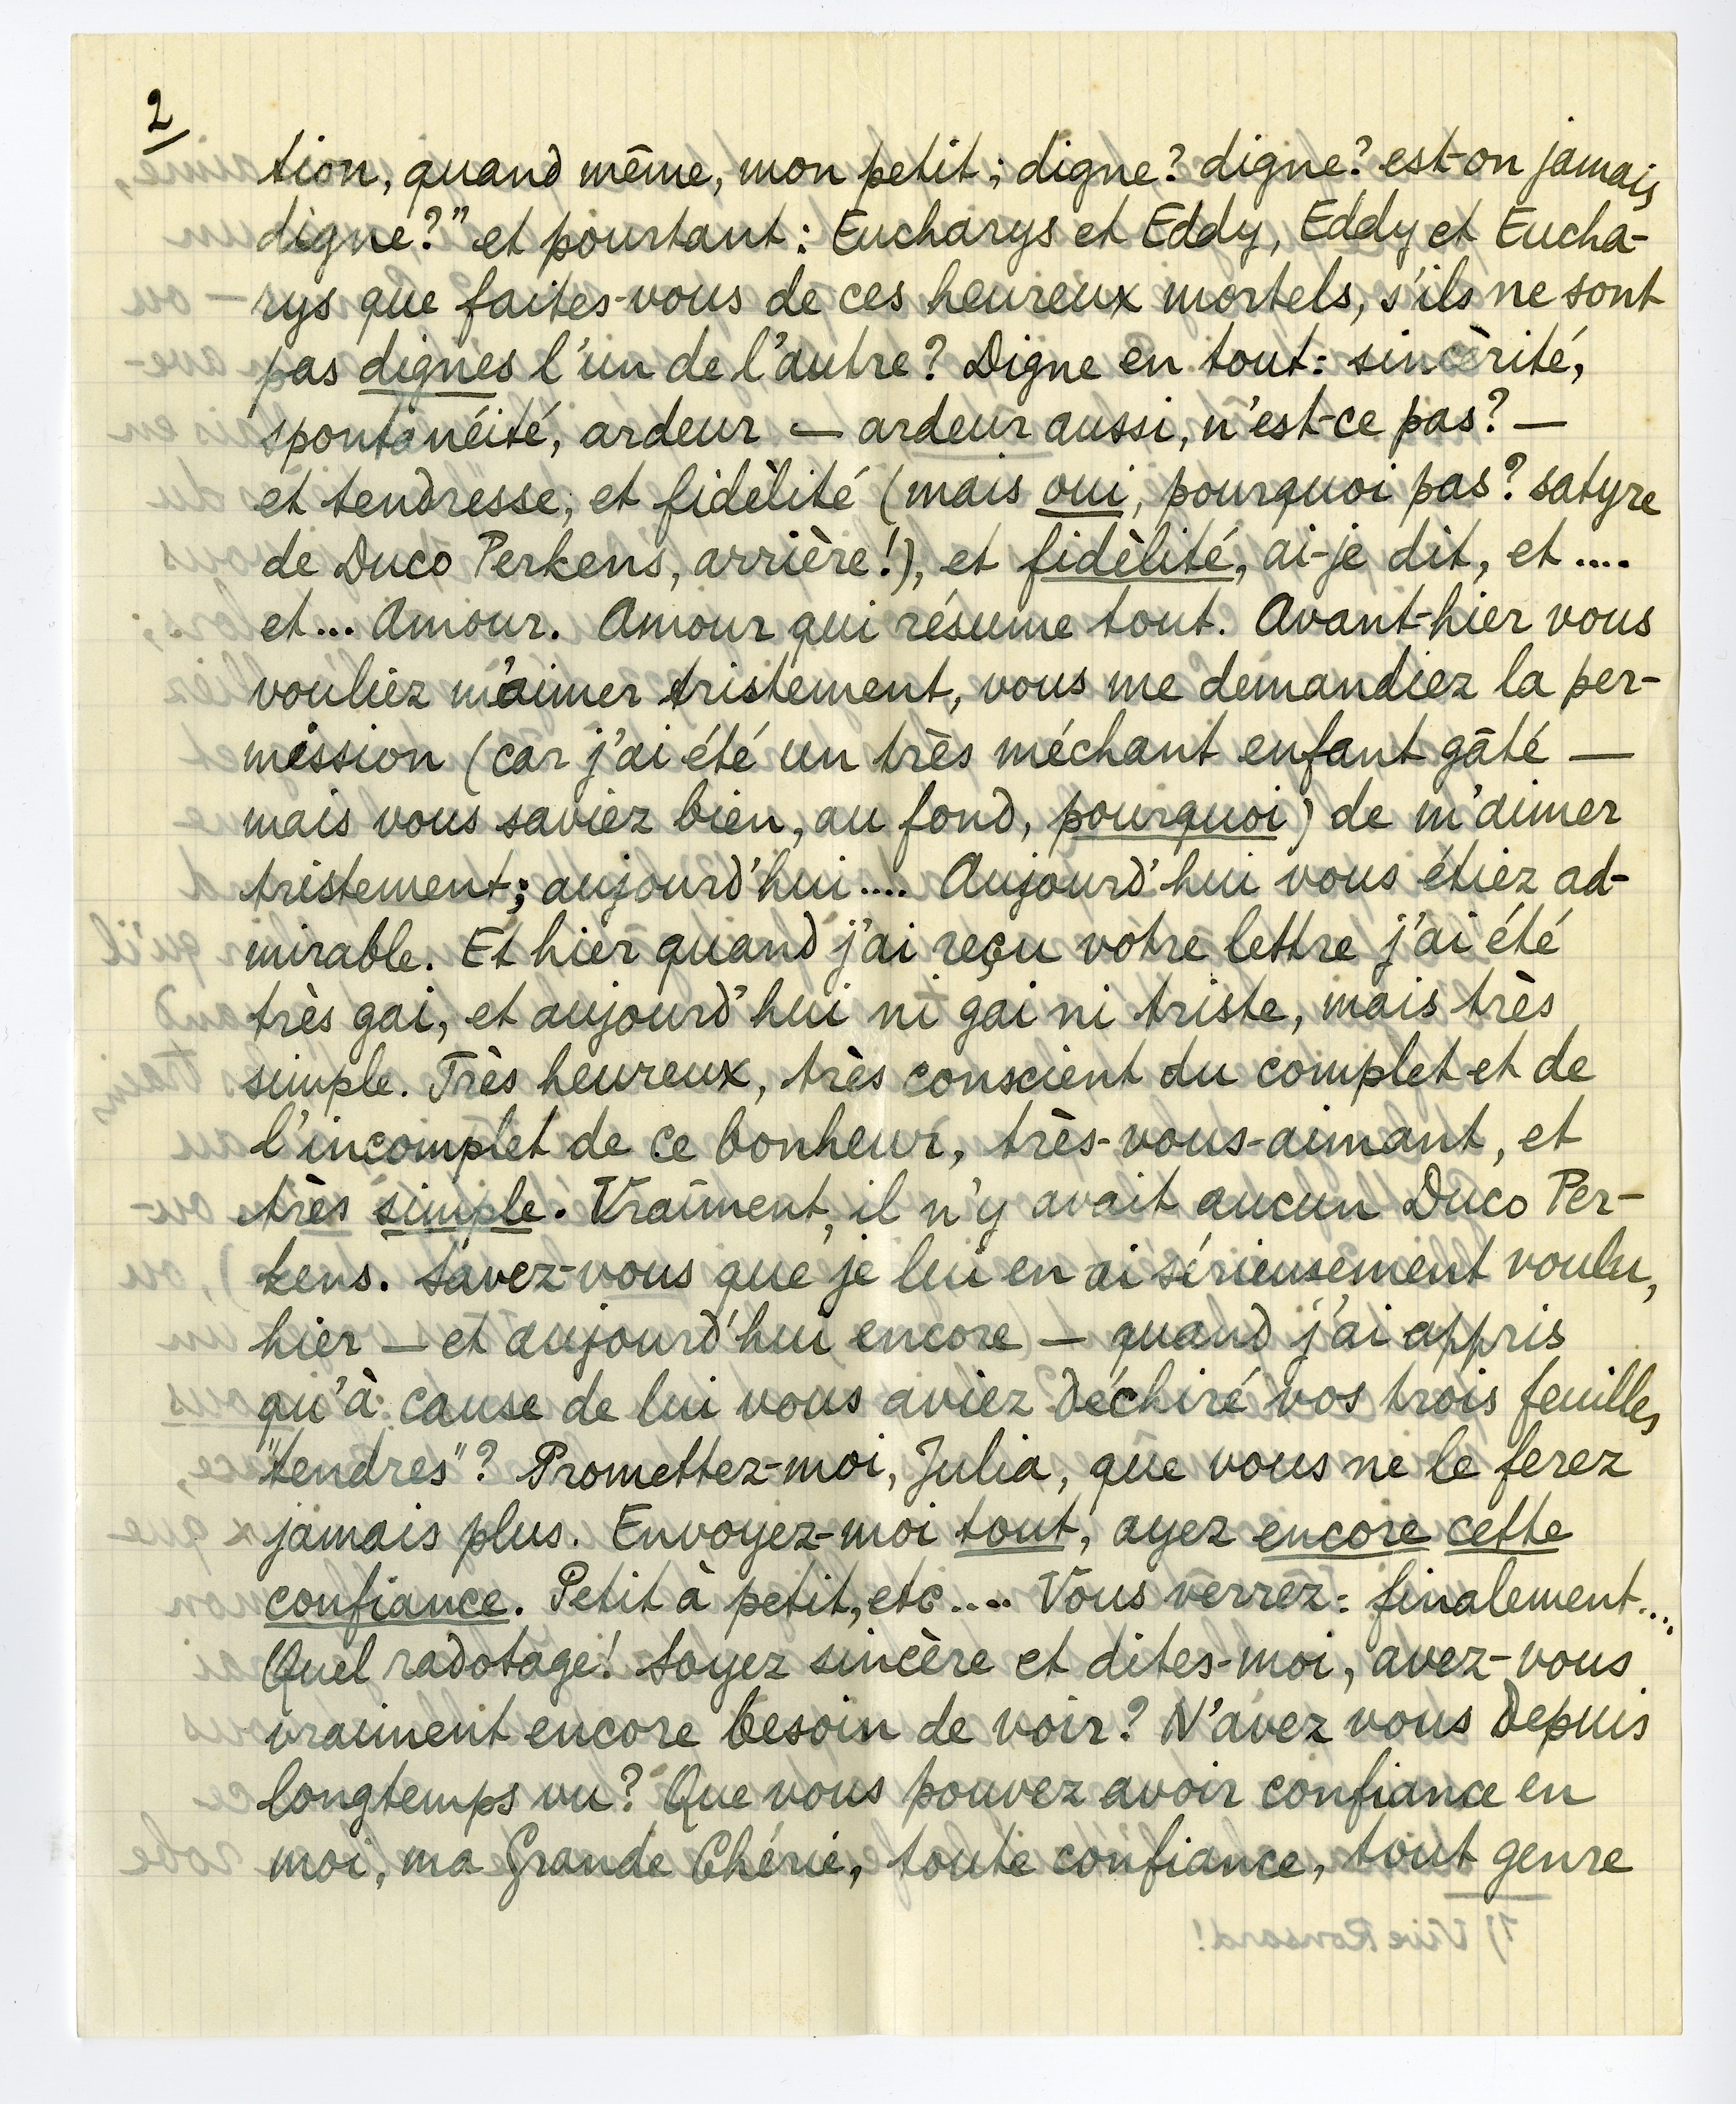 2
tion, quand même, mon petit; digne? digne? est-on jamais
digne?" et pourtant: Eucharys et Eddy, Eddy et Eucha-
rys que faites-vous de ces heureux mortels, s'ils ne sont
pas dignes l'un de l'autre? Digne en tout: sincèrité,
spontanéité, ardeur — ardeur aussi, n'est-ce pas? —
et tendresse, et fidèlité (mais oui, pourquoi pas? satyre
de Duco Perkens, arrière!), et fidèlité, ai-je dit, et ....
et... Amour. Amour qui résume tout. Avant-hier vous
vouliez m'aimer tristement, vous me demandiez la per-
mission (car j'ai été un très méchant enfant gâté —
mais vous saviez bien, au fond, pourquoi) de m'aimer
tristement; aujourd'hui .... Aujourd'hui vous étiez ad-
mirable. Et hier quand j'ai reçu votre lettre j'ai été
très gai, et aujourd'hui ni gai ni triste, mais très
simple. Très heureux, très conscient du complet et de
l'incomplet de ce bonheur, très-vous-aimant, et
très simple. Vraiment, il n'y avait aucun Duco Per-
kens. Savez-vous que je lui en ai sérieusement voulu,
hier — et aujourd'hui encore — quand j'ai appris
qu'à cause de lui vous aviez déchiré vos trois feuilles
"tendres"? Promettez-moi, Julia, que vous ne le ferez
jamais plus. Envoyez-moi tout, ayez encore cette
confiance. Petit à petit, etc .... Vous verrez: finalement....
Quel radotage! Soyez sincère et dites-moi, avez-vous
vraiment encore besoin de voir? N'avez vous depuis
longtemps vu? Que vous pouvez avoir confiance en
moi, ma Grande Chérie, toute confiance, tout genre
1) Vive Ronsard!